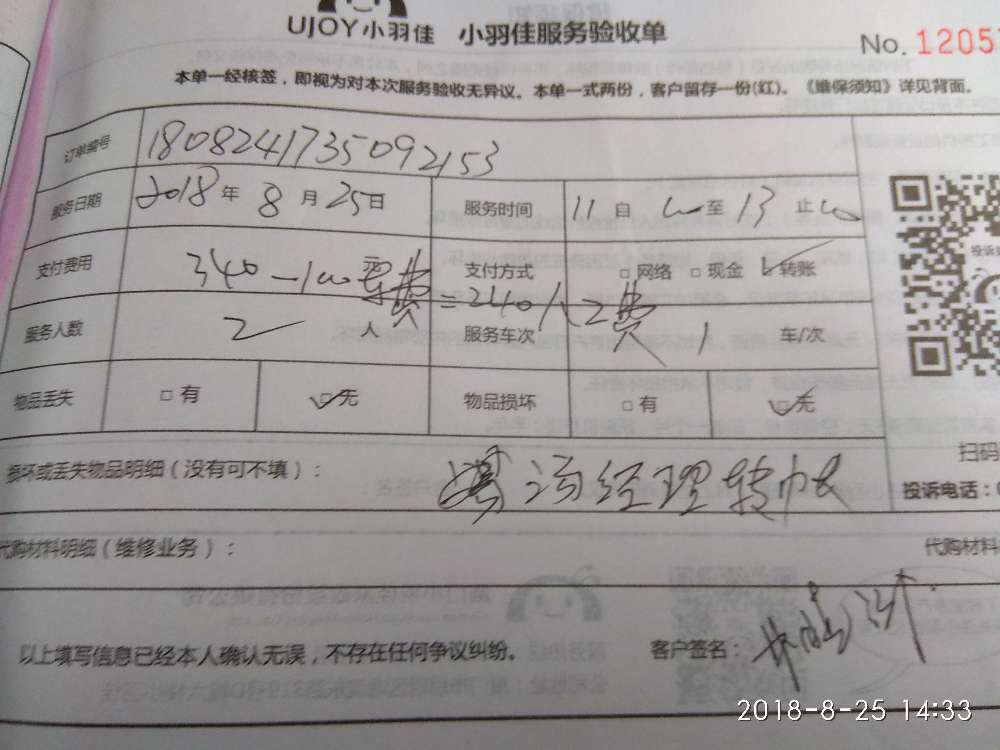 UJOY小羽佳 小羽佳服务验收单
No. 1205
本单一经核签，即视为对本次服务验收无异议。本单一式两份，客户留存一份(红)。《维保须知》详见背面。
订单编号 1808241735092153
服务日期 2018年8月25日 服务时间 11自00至13止00
支付费用 340-100券费=240人工费 支付方式 □网络 □现金 ☑转账
服务人数 2人 服务车次 1 车/次
物品丢失 □有 ☑无 物品损坏 □有 ☑无
扫码
损坏或丢失物品明细（没有可不填）： 经理转帐
投诉电话：
代购材料明细（维修业务）： 代购材料
以上填写信息已经本人确认无误，不存在任何争议纠纷。 客户签名：
2018-8-25 14:33